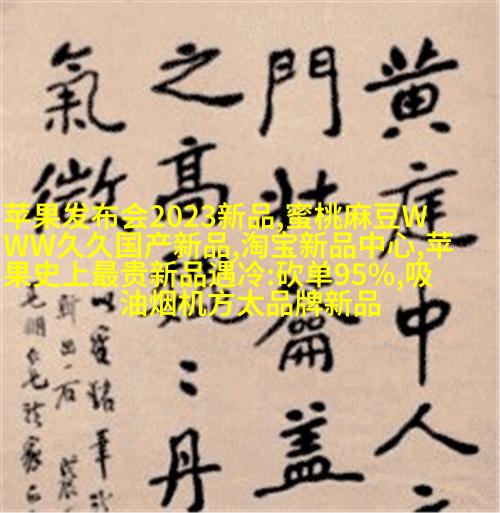 苹果发布会2023新品,蜜桃麻豆W
WW久久国产新品,淘宝新品中心,苹
果史上最贵新品遇冷:砍单95%,吸
油烟机方太品牌新品
黄庭中人
門壯籥蓋
之高巍〻丹
氣微